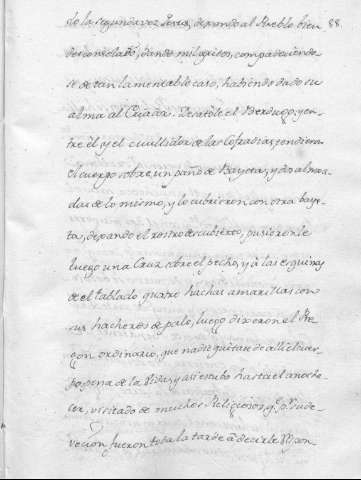 do la segunda voz Jesus, dexando al Pueblo bien 88
desconsolado, dando mil gritos, compadeciendo
se de tan lamentable caso, habiendo dado su
alma al Criador. Desatole el Berdugo, y en
tre él y el mullidor de las Cofradias tendieron
el cuerpo sobre un paño de Bayeta, y dos almoa
das de lo mismo, y lo cubrieron con otra baye
ta, dexando el rostro descubierto, pusieronle
luego una Cruz sobre el pecho, y à las esquinas
de el tablado quatro hachas amarillas con
sus hacheros de palo, luego dixeron el Pre
gon ordinario, que nadie quitase de alli el cuer
po, pena de la Vida, y asi estubo hasta el anoche
cer, visitado de muchos Religiosos, q.e p.r su de
vocion fueron toda la tarde à decirle Respon